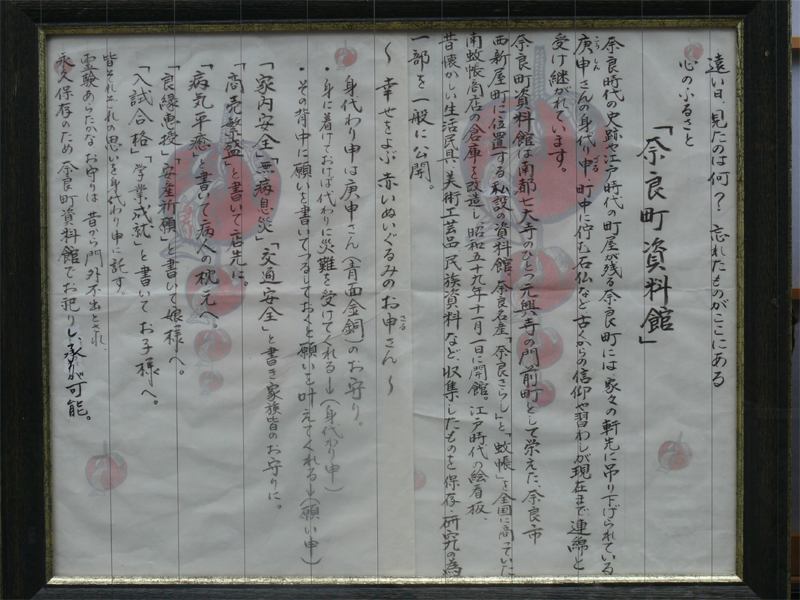 遠い日、見たのは何？ 忘れたものがここにある
心のふるさと
「奈良町資料館」
奈良時代の史跡や江戸時代の町屋が残る奈良町には家々の軒先に吊り下げられている
庚申さんの身代り申、町中に佇む石仏など古くからの信仰や習わしが現在まで連綿と
こうしん
ざる
受け継がれています。
奈良町資料館は南都七大寺のひとつ元興寺の門前町として栄えた、奈良市
西新屋町に位置する私設の資料館。奈良名産「奈良さらし」と「蚊帳」を全国に商っていた
南蚊帳商店の倉庫を改造し昭和五十九年十一月一日に開館。江戸時代の絵看板、
昔懐かしい生活民具、美術工芸品、民族資料など、収集したものを保存・研究の為
一部を一般に公開。
〜 幸せをよぶ 赤いぬいぐるみのお申さん 〜
さる
身代わり申は庚申さん（青面金剛）のお守り。
・身に着けておけば代わりに災難を受けてくれる→（身代わり申）
・その背中に願いを書いてつるしておくと願いを叶えてくれる→（願い申）
「家内安全」「無病息災」「交通安全」と書き家族皆のお守りに。
「商売繁盛」と書いて店先に。
「病気平癒」と書いて病人の枕元へ。
「良縁恵授」「安産祈願」と書いて娘様へ。
「入試合格」「学業成就」と書いてお子様へ。
皆それぞれの思いを身代わり申に託す。
霊験あらたかなお守りは昔から門外不出とされ、
永久保存のため奈良町資料館でお祀りし、承が可能。